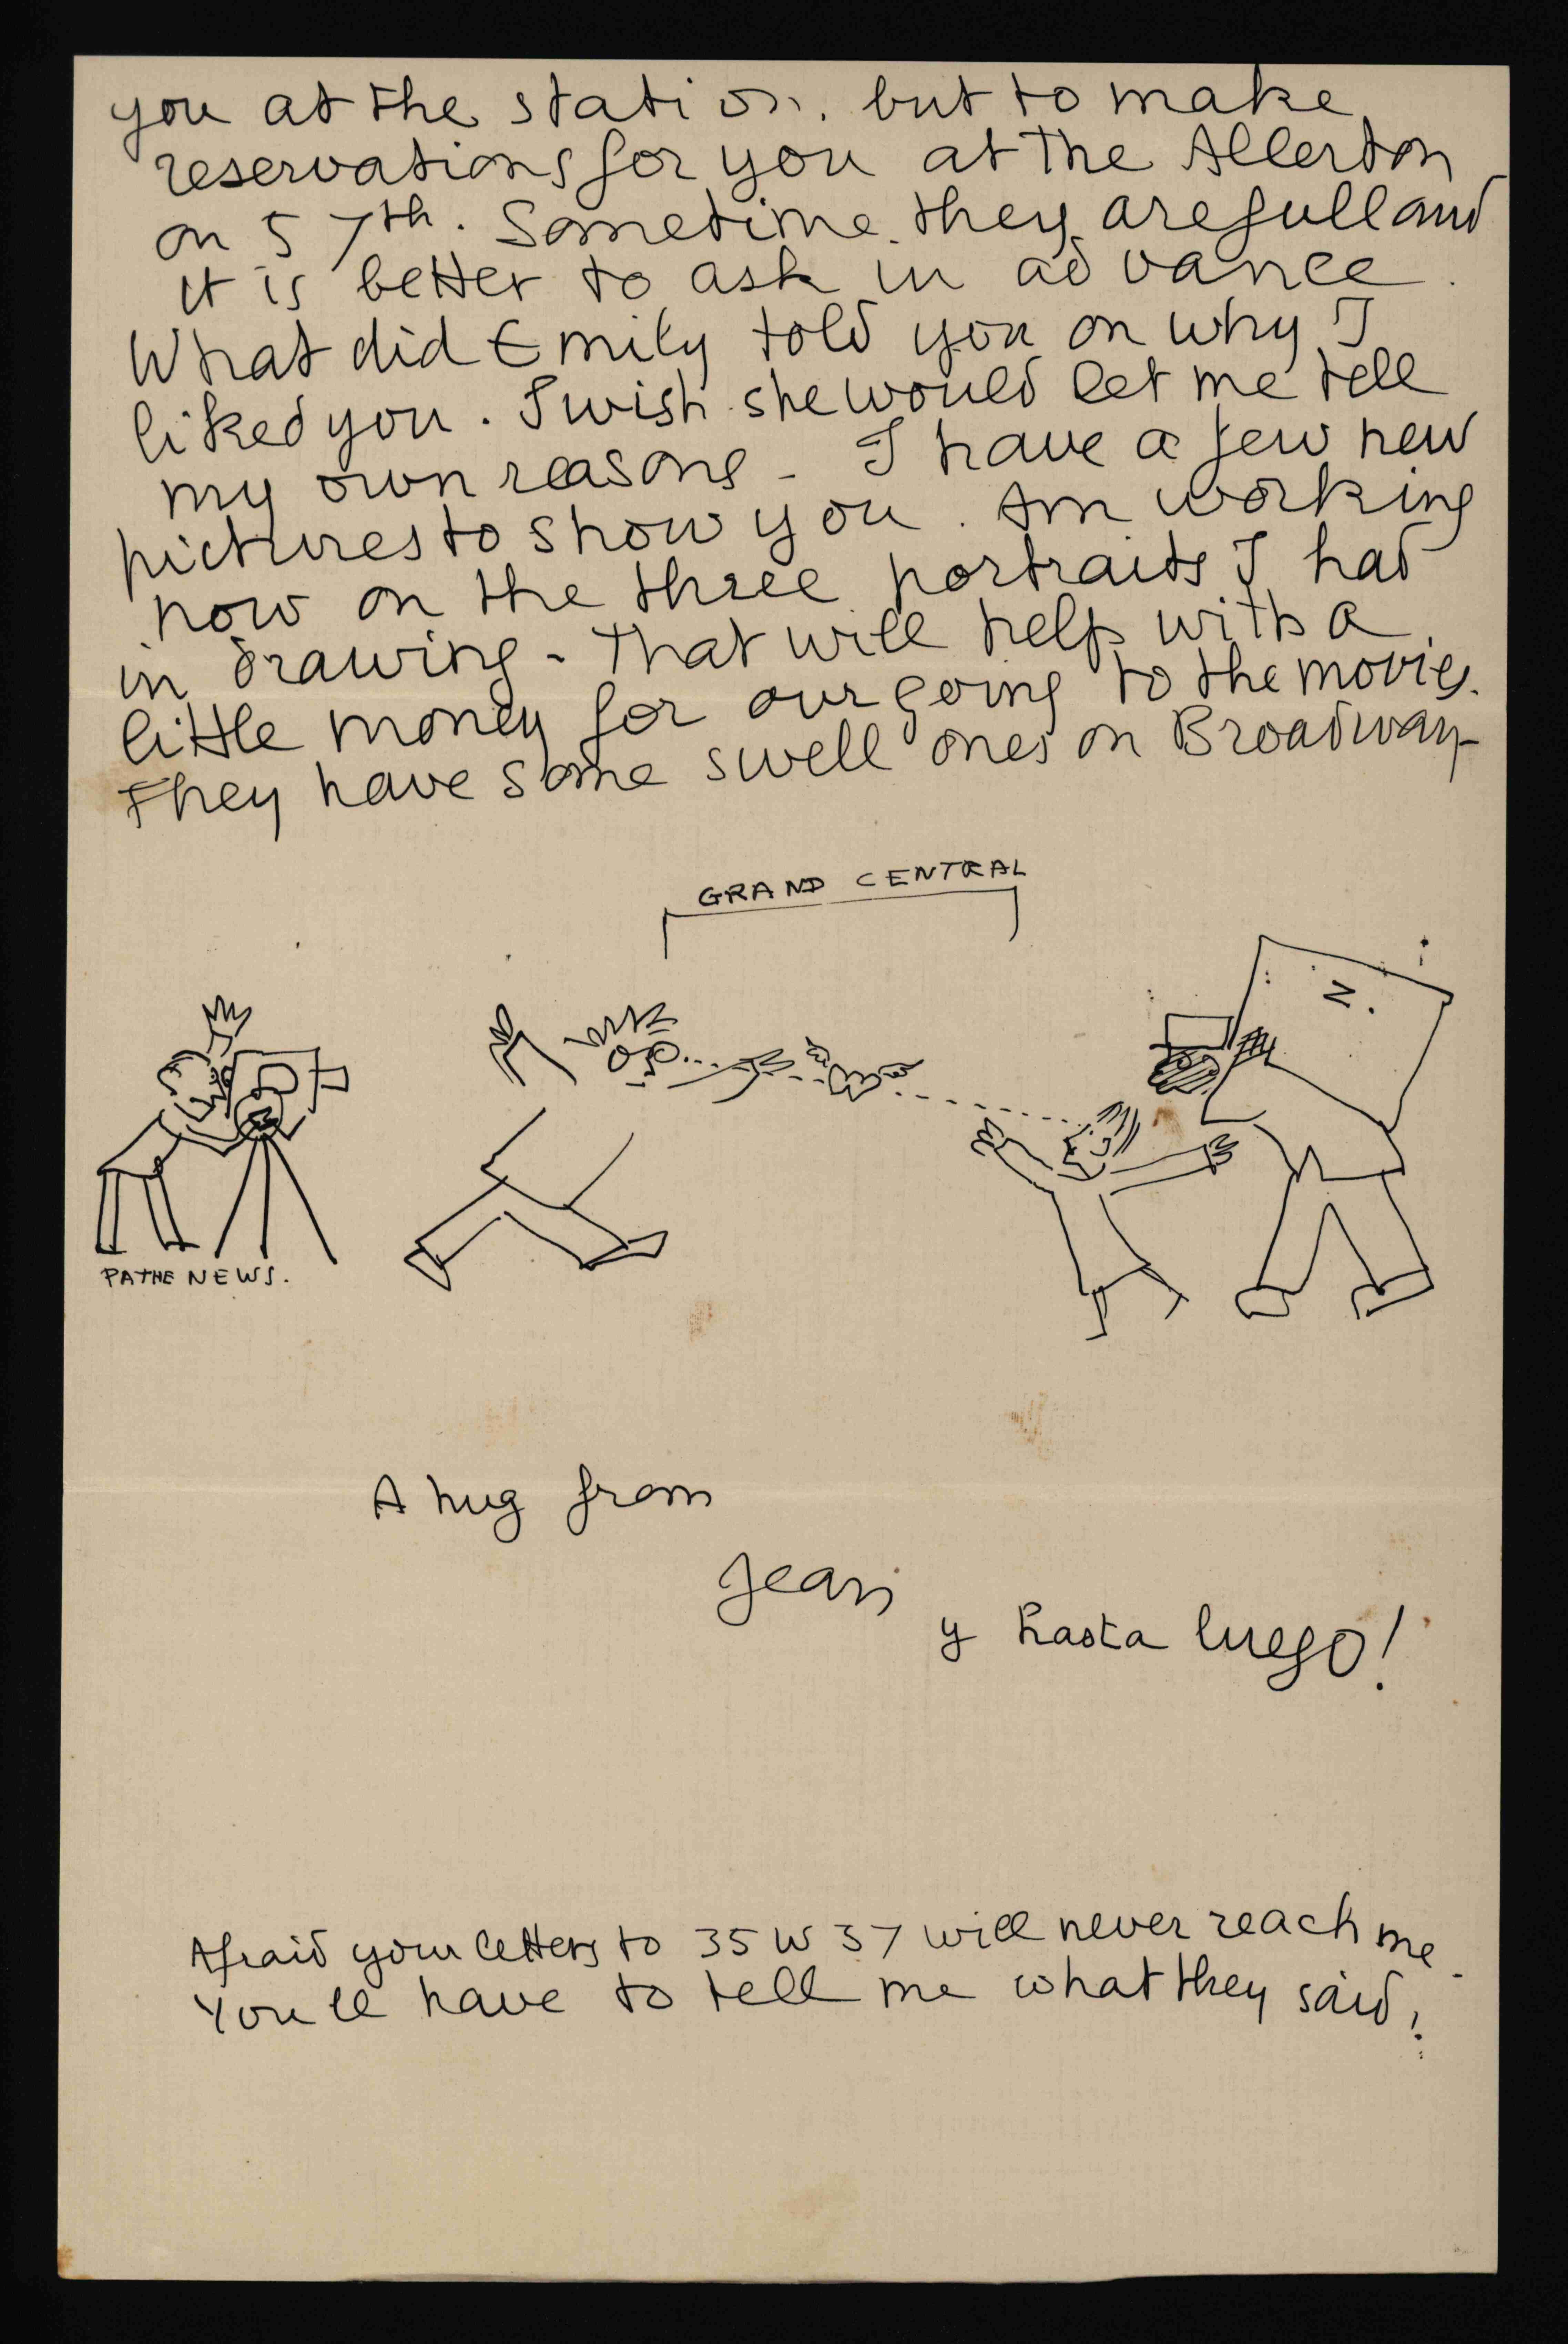 you at the station. but to make
reservations for you at the Allerton
on 57th. Sometime they are full and
it is better to ask in advance.
What did Emily told you on why I
liked you. I wish she would let me tell
my own reasons - I have a few new
pictures to show you. Am working
now on the three portraits I had
in drawing - that will help with a
little money for our going to the movies.
They have some swell ones on Broadway-
GRAND CENTRAL
N.
PATHE NEWS.
A hug from
Jean
y hasta luego!
Afraid your letters to 35 W 57 will never reach me.
You'll have to tell me what they said!